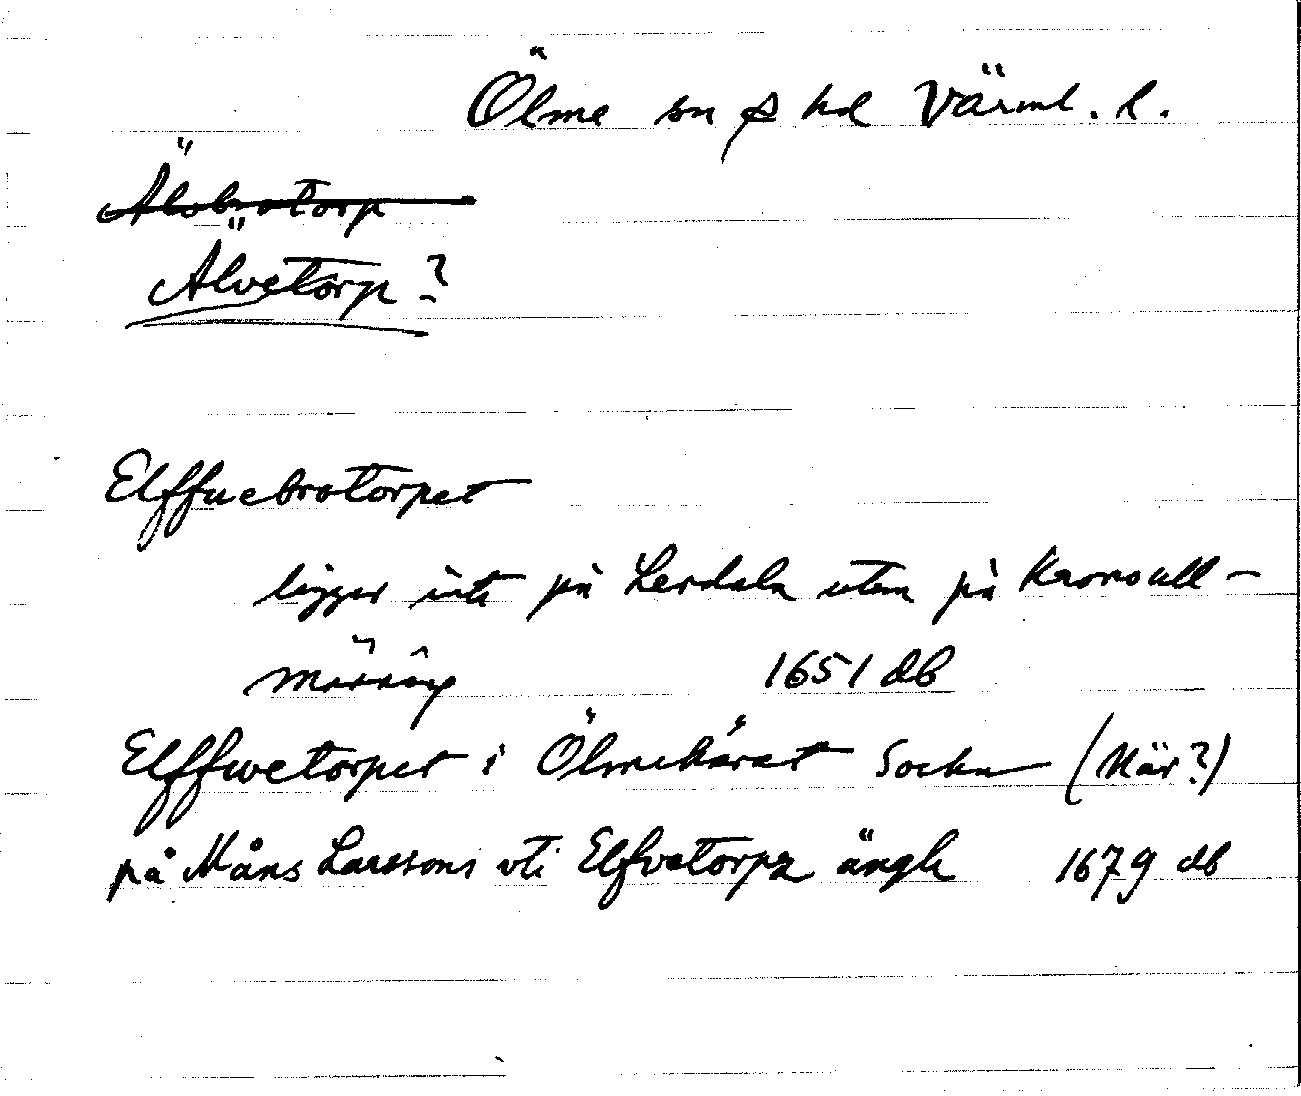 Ölme sn o hd Värml. l.
Älvbrotorp
Älvetorp?
Elffuebrotorpet
ligger inte på Lerdala utan på Kronoall-
männing 1651 db
Elffwetorpet i Ölmehärat Sockn (När?)
på Måns Larssons uti Elfvetorpz ängh 1679 db